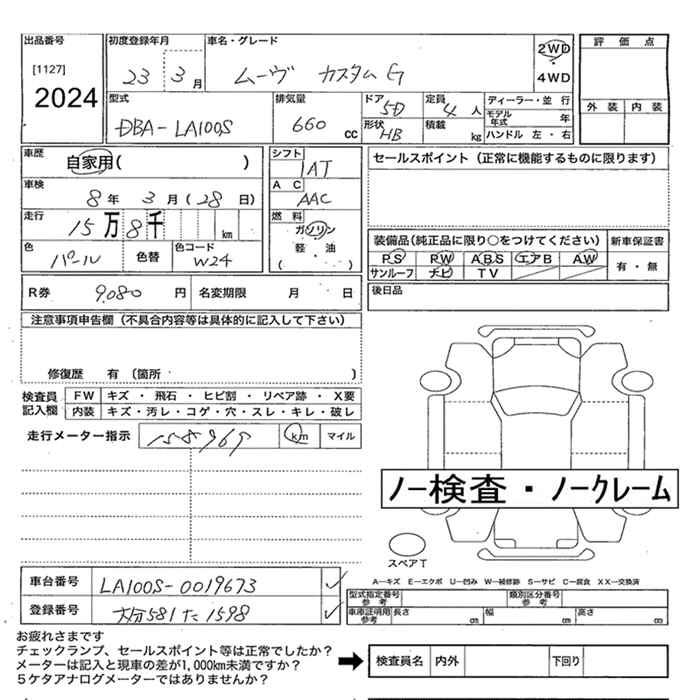 出品番号 初度登録年月 車名・グレード 評価点
[1127]
2024
23 3月 ムーヴ カスタムG
2WD
・
4WD
型式 排気量 ドア 定員 ディーラー・並行 外装 内装
DBA-LA100S 660cc 5D 4人 モデル年式 年
形状 HB 積載 kg ハンドル 左・右
車歴 自家用( ) シフト IAT セールスポイント(正常に機能するものに限ります)
車検 8年 3月(28日) AC AAC
走行 15万8千 km 燃料 ガソリン
軽・油
( )
装備品(純正品に限り○をつけてください) 新車保証書
色 パール 色替 色コード W24
PS PW ABS エアB AW 有・無
サンルーフ ナビ TV
R券 9,080円 名変期限 月 日 後日品
注意事項申告欄(不具合内容等は具体的に記入して下さい)
修復歴 有(箇所 )
検査員記入欄 FW キズ・飛石・ヒビ割・リペア跡・X要
内装 キズ・汚レ・コゲ・穴・スレ・キレ・破レ
走行メーター指示 158969 km マイル
ノー検査・ノークレーム
スペアT
A―キズ E―エクボ U―凹み W―補修跡 S―サビ C―腐食 XX―交換済
車台番号 LA100S-0019673
型式指定番号 参考 類別区分番号 参考
登録番号 大分581た1598
車庫証明用 参考 長さ cm 幅 cm 高さ cm
お疲れさまです
チェックランプ、セールスポイント等は正常でしたか?
メーターは記入と現車の差が1,000km未満ですか?
5ケタアナログメーターではありませんか?
検査員名 内外 下回り